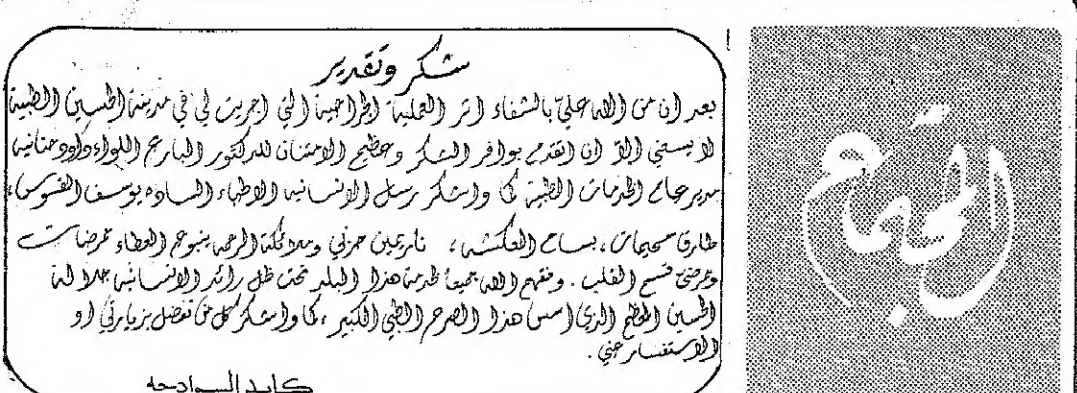 شكر وتقدير
بعد ان من الله عليّ بالشفاء اثر العملية الجراحية التي اجريت لي في مدينة الحسين الطبية
لا يسعني الا ان اتقدم بوافر الشكر وعظيم الامتنان للدكتور البارع اللواء داود حنانيا
مدير عام الخدمات الطبية كما واشكر رسل الانسانيه الاطباء الساده يوسف القسوس،
طارق سحيمات، بسام العكشه، ناريمين وملائكة الرحمه ينبوع العطاء ممرضات
وممرضي قسم القلب. وفقهم الله جميعا لخدمة هذا البلد تحت ظل رائد الانسانيه جلالة
الحسين المعظم الذي اسس هذا الصرح الطبي الكبير، كما واشكر كل من تفضل بزيارتي او
الاستفسار عني.
كايد السوادحه